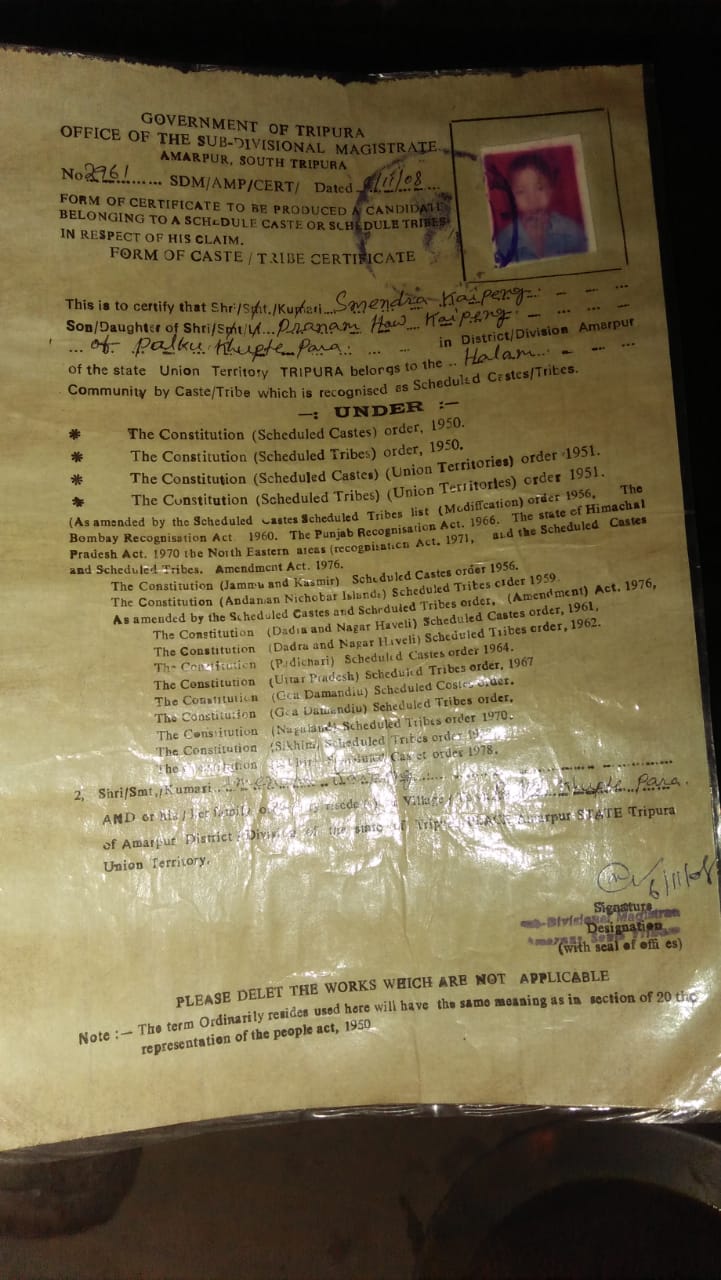 GOVERNMENT OF TRIPURA
OFFICE OF THE SUB-DIVISIONAL MAGISTRATE
AMARPUR, SOUTH TRIPURA
No 2961 ...... SDM/AMP/CERT/ Dated /11/08
FORM OF CERTIFICATE TO BE PRODUCED A CANDIDATE
BELONGING TO A SCHEDULE CASTE OR SCHEDULE TRIBES
IN RESPECT OF HIS CLAIM.
FORM OF CASTE / TRIBE CERTIFICATE
This is to certify that Shri/Smt./Kumari... Smendra Kaipeng
Son/Daughter of Shri/Smt/ Pranam Kaipeng
of Palku Para in District/Division Amarpur
of the state Union Territory TRIPURA belongs to the .. Halam
Community by Caste/Tribe which is recognised as Scheduled Castes/Tribes.
—: UNDER :—
* The Constitution (Scheduled Castes) order, 1950.
* The Constitution (Scheduled Tribes) order, 1950.
* The Constitution (Scheduled Castes) (Union Territories) order 1951.
* The Constitution (Scheduled Tribes) (Union Territories) order 1951.
(As amended by the Scheduled Castes Scheduled Tribes list (Modiffcation) order 1956, The
Bombay Recognisation Act 1960. The Punjab Recognisation Act. 1966. The state of Himachal
Pradesh Act. 1970 the North Eastern areas (recognisation Act. 1971, and the Scheduled Castes
and Scheduled Tribes. Amendment Act. 1976.
The Constitution (Jammu and Kasmir) Scheduled Castes order 1956.
The Constitution (Andaman Nichobar Islands) Scheduled Tribes order 1959
As amended by the Scheduled Castes and Scheduled Tribes order, (Amendment) Act. 1976,
The Constitution (Dadra and Nagar Haveli) Scheduled Castes order, 1961,
The Constitution (Dadra and Nagar Haveli) Scheduled Tribes order, 1962.
The Constitution (Pedichari) Scheduled Castes order 1964.
The Constitution (Uttar Pradesh) Scheduled Tribes order, 1967
The Constitution (Goa Damandiu) Scheduled Costes order.
The Constitution (Goa Damandiu) Scheduled Tribes order,
The Constitution (Nagaland) Scheduled Tribes order 1970.
The Constitution (Sikhim) Scheduled Tribes order
order 1978.
2, Shri/Smt,/Kumari Para
AND or his/her family Village
of Amarpur District/Division of the state of PLACE Amarpur STATE Tripura
Union Territory.
6/11/08
Signature
Sub-Divisional Magistrate
Designation
(with seal of offi es)
PLEASE DELET THE WORKS WHICH ARE NOT APPLICABLE
Note :— The term Ordinarily resides used here will have the same meaning as in section of 20 the
representation of the people act, 1950